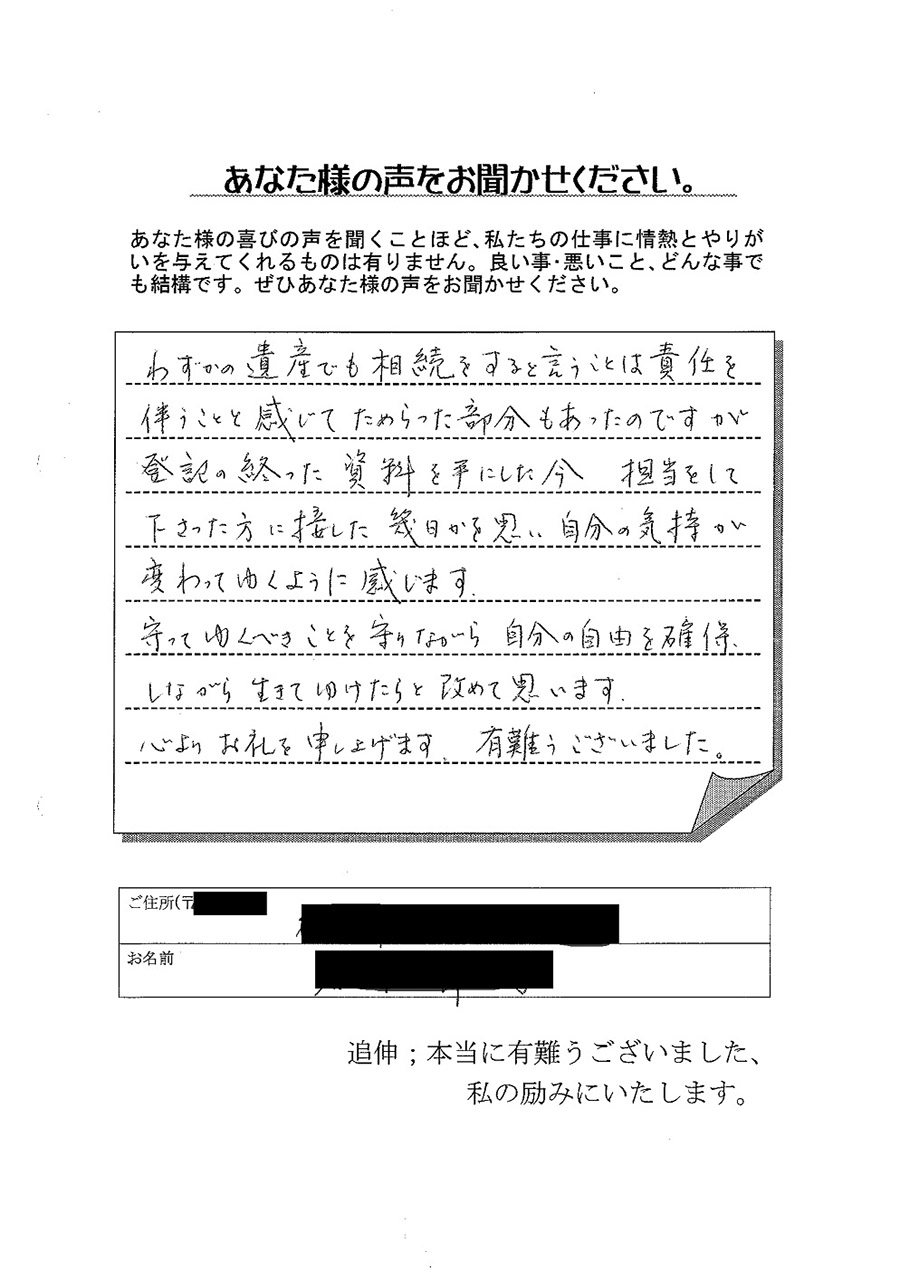 あなた様の声をお聞かせください。
あなた様の喜びの声を聞くことほど、私たちの仕事に情熱とやりが
いを与えてくれるものは有りません。良い事・悪いこと、どんな事で
も結構です。ぜひあなた様の声をお聞かせください。
わずかの遺産でも相続をすると言うことは責任を
伴うことと感じてためらった部分もあったのですが
登記の終った資料を手にした今 担当をして
下さった方に接した幾日かを思い自分の気持が
変わってゆくように感じます.
守ってゆくべきことを守りながら自分の自由を確保、
しながら生きてゆけたらと改めて思います.
心よりお礼を申し上げます. 有難うございました。
ご住所(〒
お名前
追伸；本当に有難うございました、
私の励みにいたします。